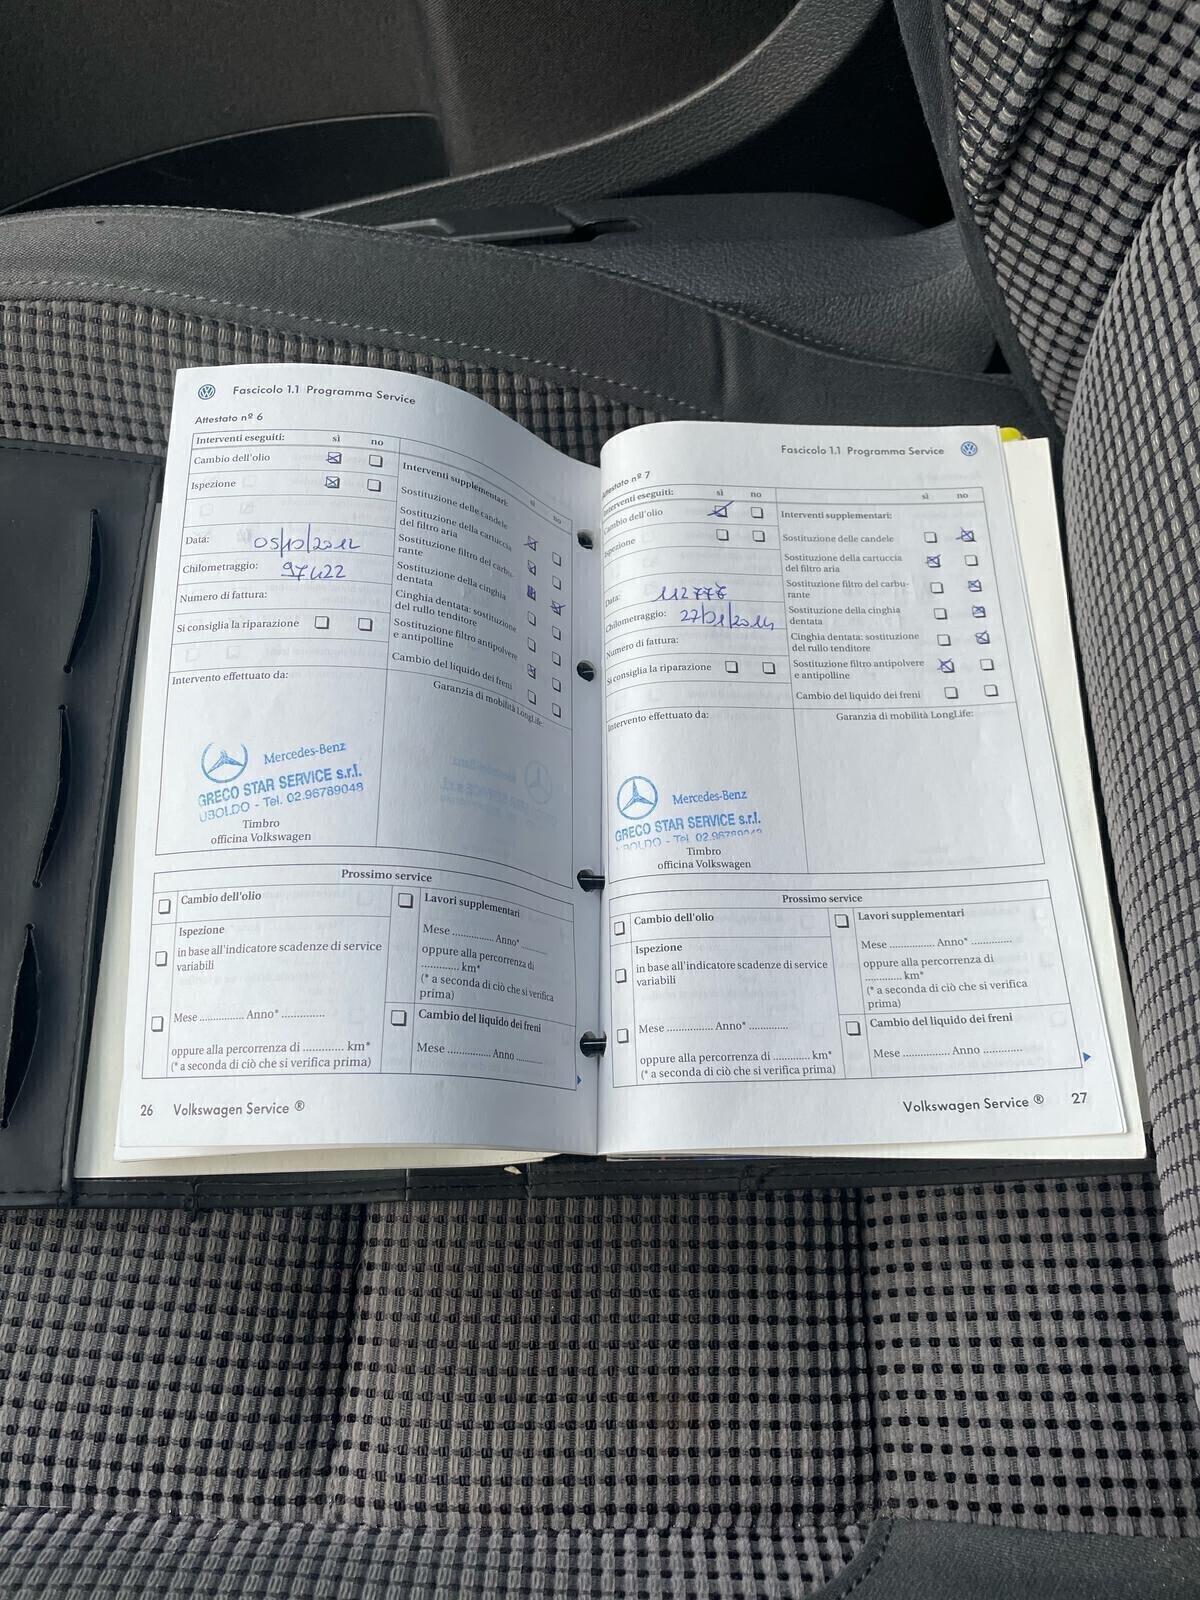 Fascicolo 1.1 Programma Service
Attestato nº 6
Interventi eseguiti:
sì
no
Cambio dell'olio
Ispezione
Data: 05/10/2012
Chilometraggio: 97422
Numero di fattura:
Si consiglia la riparazione
Interventi supplementari:
sì
no
Sostituzione delle candele
Sostituzione della cartuccia
del filtro aria
Sostituzione filtro del carbu-
rante
Sostituzione della cinghia
dentata
Cinghia dentata: sostituzione
del rullo tenditore
Sostituzione filtro antipolvere
e antipolline
Cambio del liquido dei freni
Intervento effettuato da:
Garanzia di mobilità LongLife:
Mercedes-Benz
GRECO STAR SERVICE s.r.l.
UBOLDO - Tel. 02.96789048
Timbro
officina Volkswagen
Prossimo service
Cambio dell'olio
Ispezione
in base all'indicatore scadenze di service
variabili
Mese ............... Anno* ...............
oppure alla percorrenza di ............ km*
(* a seconda di ciò che si verifica prima)
Lavori supplementari
Mese ............... Anno* ...............
oppure alla percorrenza di
............ km*
(* a seconda di ciò che si verifica
prima)
Cambio del liquido dei freni
Mese ............... Anno .........
26 Volkswagen Service ®
Fascicolo 1.1 Programma Service
Attestato nº 7
Interventi eseguiti:
sì
no
Cambio dell'olio
Ispezione
Data: 112776
Chilometraggio: 27/01/2014
Numero di fattura:
Si consiglia la riparazione
sì
no
Interventi supplementari:
Sostituzione delle candele
Sostituzione della cartuccia
del filtro aria
Sostituzione filtro del carbu-
rante
Sostituzione della cinghia
dentata
Cinghia dentata: sostituzione
del rullo tenditore
Sostituzione filtro antipolvere
e antipolline
Cambio del liquido dei freni
Intervento effettuato da:
Garanzia di mobilità LongLife:
Mercedes-Benz
GRECO STAR SERVICE s.r.l.
UBOLDO - Tel.
Timbro
officina Volkswagen
Prossimo service
Cambio dell'olio
Ispezione
in base all'indicatore scadenze di service
variabili
Mese ............... Anno* .............
oppure alla percorrenza di ............ km*
(* a seconda di ciò che si verifica prima)
Lavori supplementari
Mese ............... Anno* .............
oppure alla percorrenza di
............ km*
(* a seconda di ciò che si verifica
prima)
Cambio del liquido dei freni
Mese ............... Anno .............
Volkswagen Service ® 27